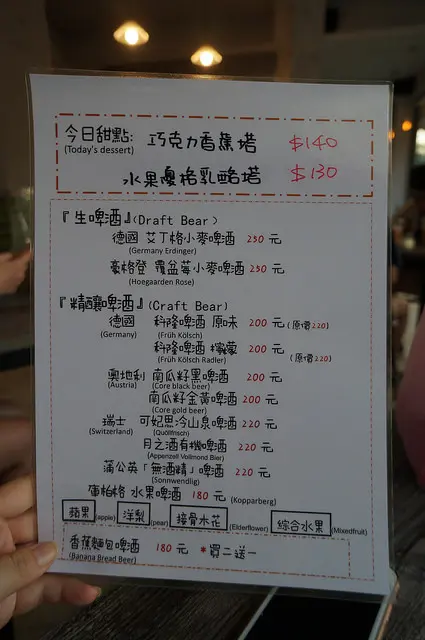 今日甜點: 巧克力香蕉塔 $140
(Today's dessert)
水果優格乳酪塔 $130
『生啤酒』(Draft Bear)
德國 艾丁格小麥啤酒 250 元
(Germany Erdinger)
豪格登 覆盆莓小麥啤酒 250 元
(Hoegaarden Rose)
『精釀啤酒』(Craft Bear)
德國 科隆啤酒 原味 200 元 (原價220)
(Germany) (Früh Kölsch)
科隆啤酒 檸檬 200 元 (原價220)
(Früh Kölsch Radler)
奧地利 南瓜籽黑啤酒 200 元
(Austria) (Core black beer)
南瓜籽金黃啤酒 200 元
(Core gold beer)
瑞士 可妃思冷山泉啤酒 220 元
(Switzerland) (Quöllfrisch)
月之酒有機啤酒 220 元
(Appenzell Vollmond Bier)
蒲公英「無酒精」啤酒 220 元
(Sonnwendlig)
蔻柏格 水果啤酒 180 元 (Kopparberg)
蘋果 (apple) 洋梨 (pear) 接骨木花 (Elderflower) 綜合水果 (Mixedfruit)
香蕉麵包啤酒 180 元 *買二送一
(Banana Bread Beer)